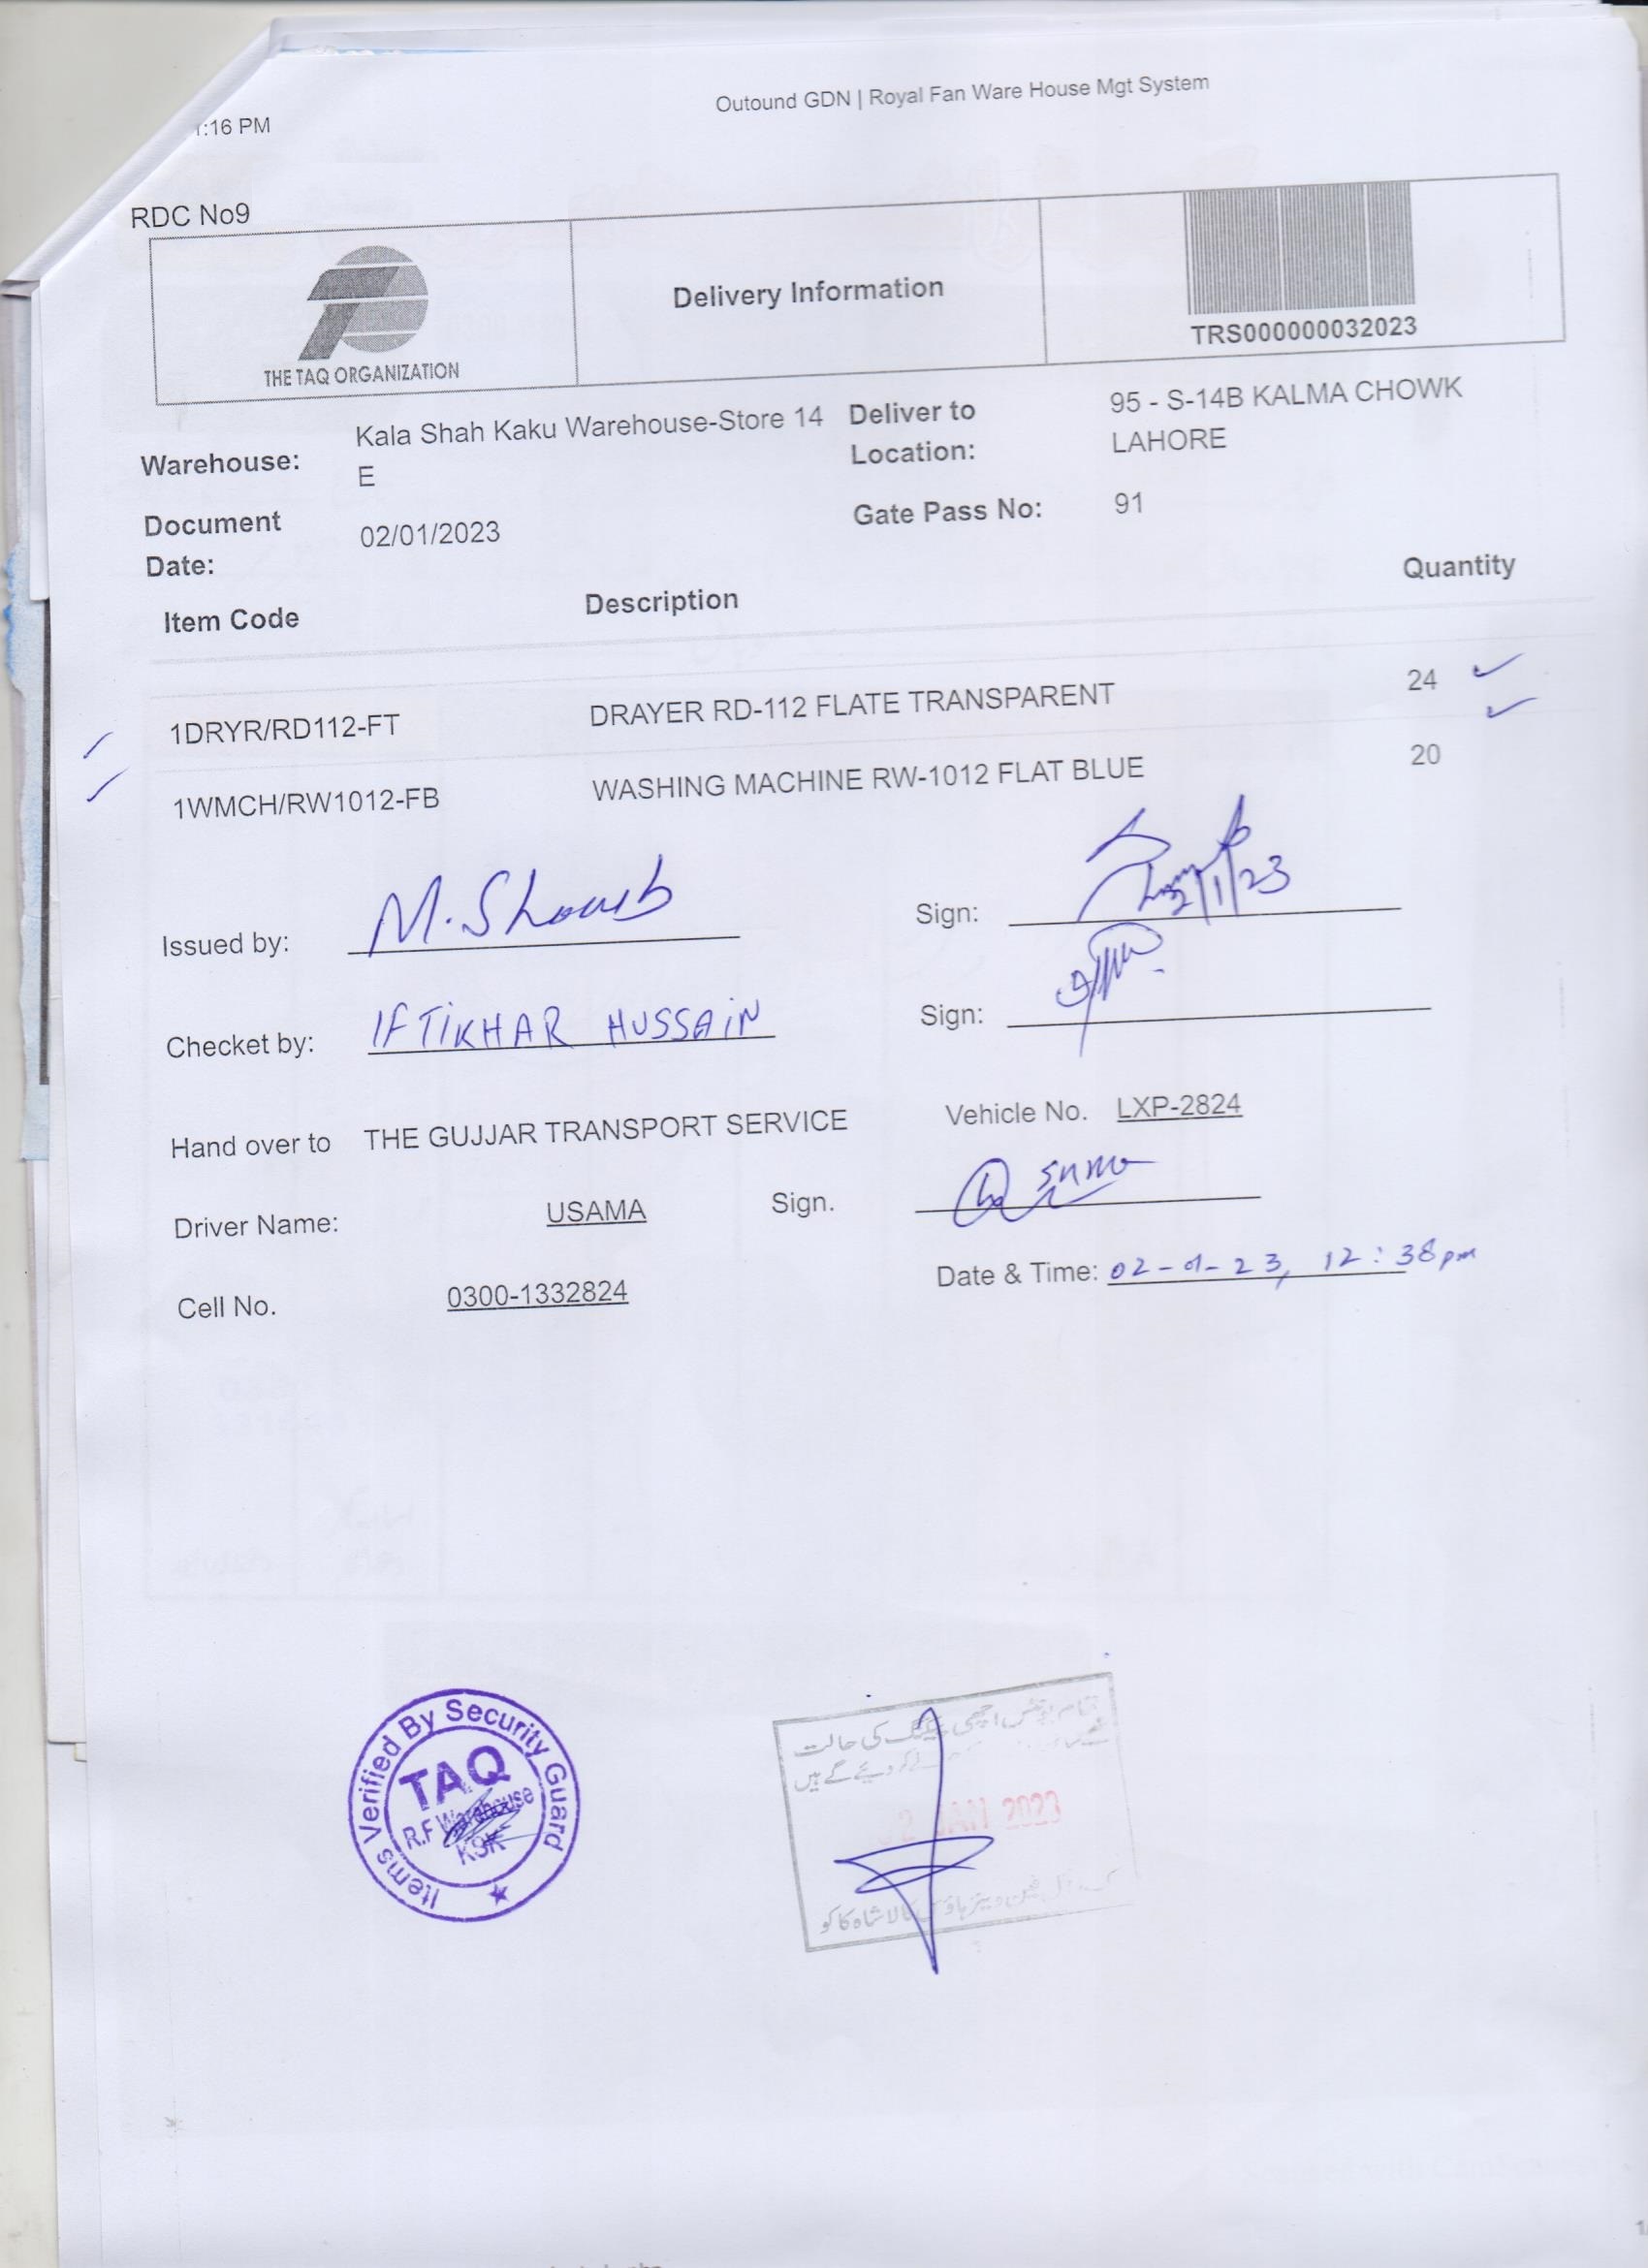 :16 PM
Outound GDN | Royal Fan Ware House Mgt System
RDC No9
THE TAQ ORGANIZATION
Delivery Information
TRS000000032023
Warehouse: Kala Shah Kaku Warehouse-Store 14 E
Deliver to Location: 95 - S-14B KALMA CHOWK LAHORE
Document Date: 02/01/2023
Gate Pass No: 91
Item Code Description Quantity
1DRYR/RD112-FT DRAYER RD-112 FLATE TRANSPARENT 24
1WMCH/RW1012-FB WASHING MACHINE RW-1012 FLAT BLUE 20
Issued by: M. Shoaib Sign: 2/1/23
Checket by: IFTIKHAR HUSSAIN Sign:
Hand over to THE GUJJAR TRANSPORT SERVICE Vehicle No. LXP-2824
Driver Name: USAMA Sign.
Cell No. 0300-1332824 Date & Time: 02-01-23, 12:38pm
Items Verified By Security Guard
TAQ
R.F Warehouse
KSK
اچھی پیکنگ کی حالت
کر دیئے گئے ہیں
2 JAN 2023
کالا شاہ کاکو